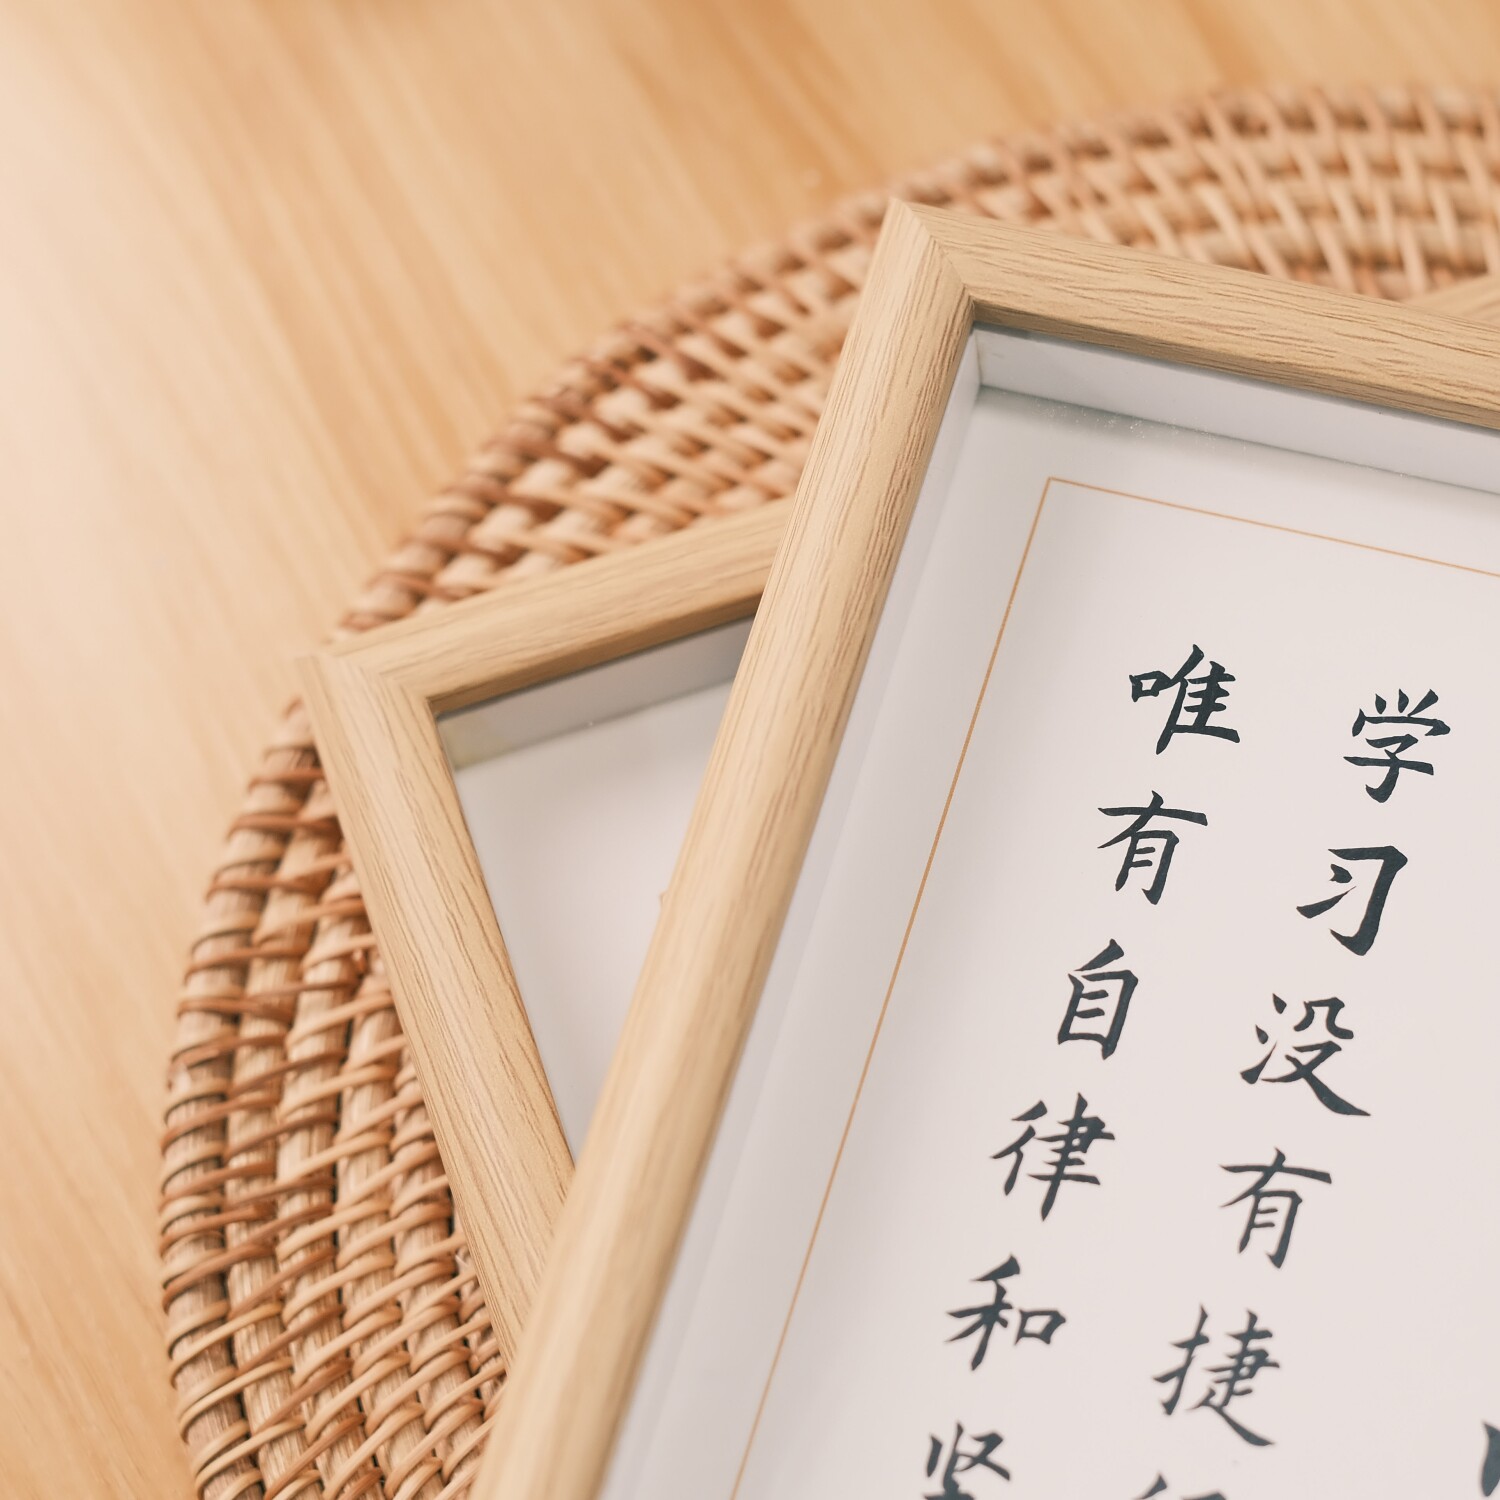 学习没有捷
唯有自律和坚